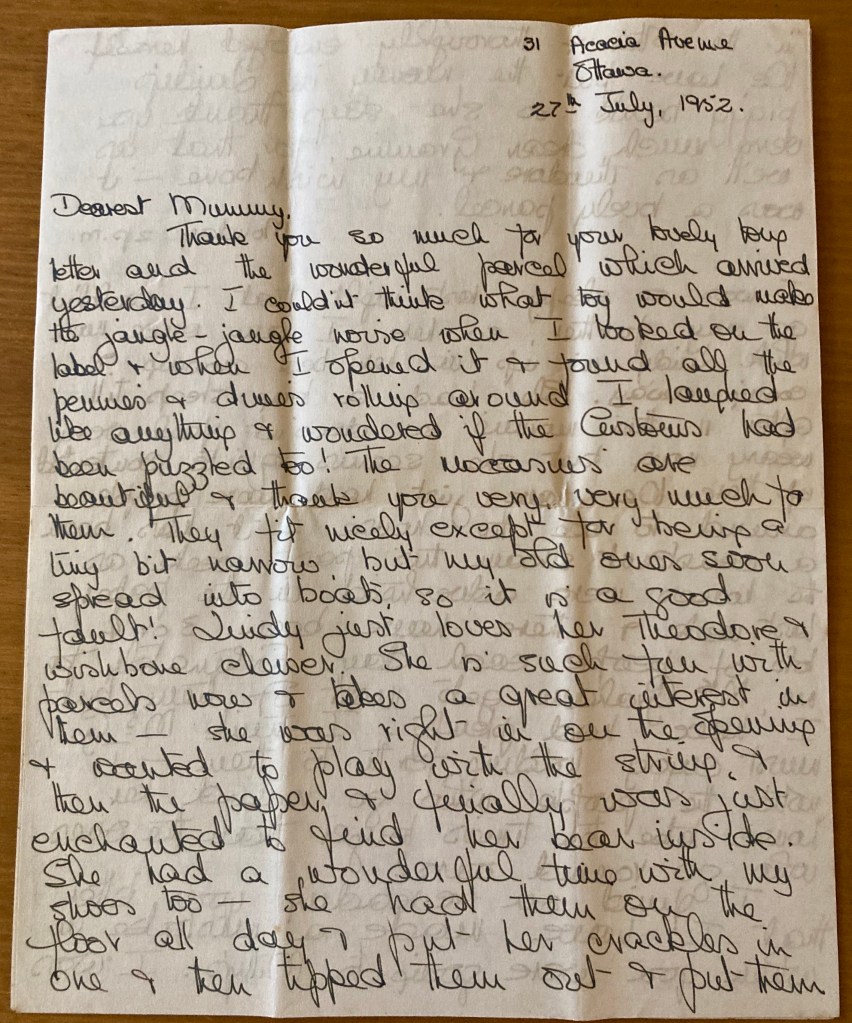 31 Acacia Avenue
Ottawa.
27th July, 1952.
Dearest Mummy,
Thank you so much for your lovely long
letter and the wonderful parcel which arrived
yesterday. I couldn't think what toy would make
the jangle-jangle noise when I looked on the
label & when I opened it & found all the
pennies & dimes rolling around I laughed
like anything & wondered if the Customs had
been puzzled too! The moccasins are
beautiful & thank you very, very much for
them. They fit nicely except for being a
tiny bit narrow, but my old ones soon
spread into boats, so it is a good
fault! Lindy just loves her Theodore &
wishbone chewer. She is such fun with
parcels now & takes a great interest in
them — she was right in on the opening
& wanted to play with the string, &
then the paper, & finally was just
enchanted to find her bear inside.
She had a wonderful time with my
shoes too — she had them on the
floor all day & put her crackles in
one & then tipped them out & put them